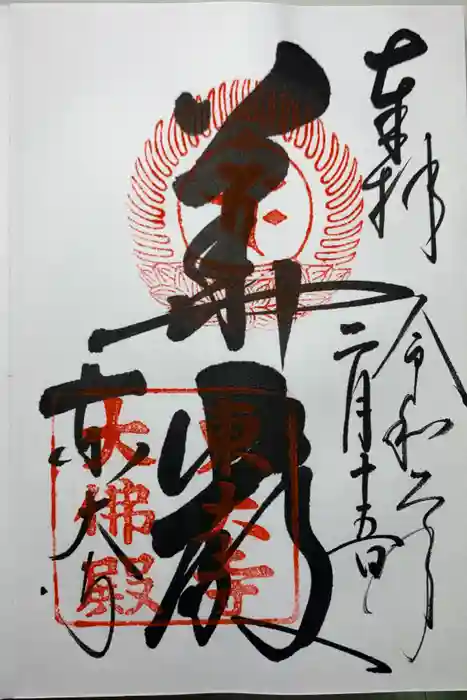 奉拝
令和二年
二月十五日
華厳
東大寺
東大寺
大佛殿